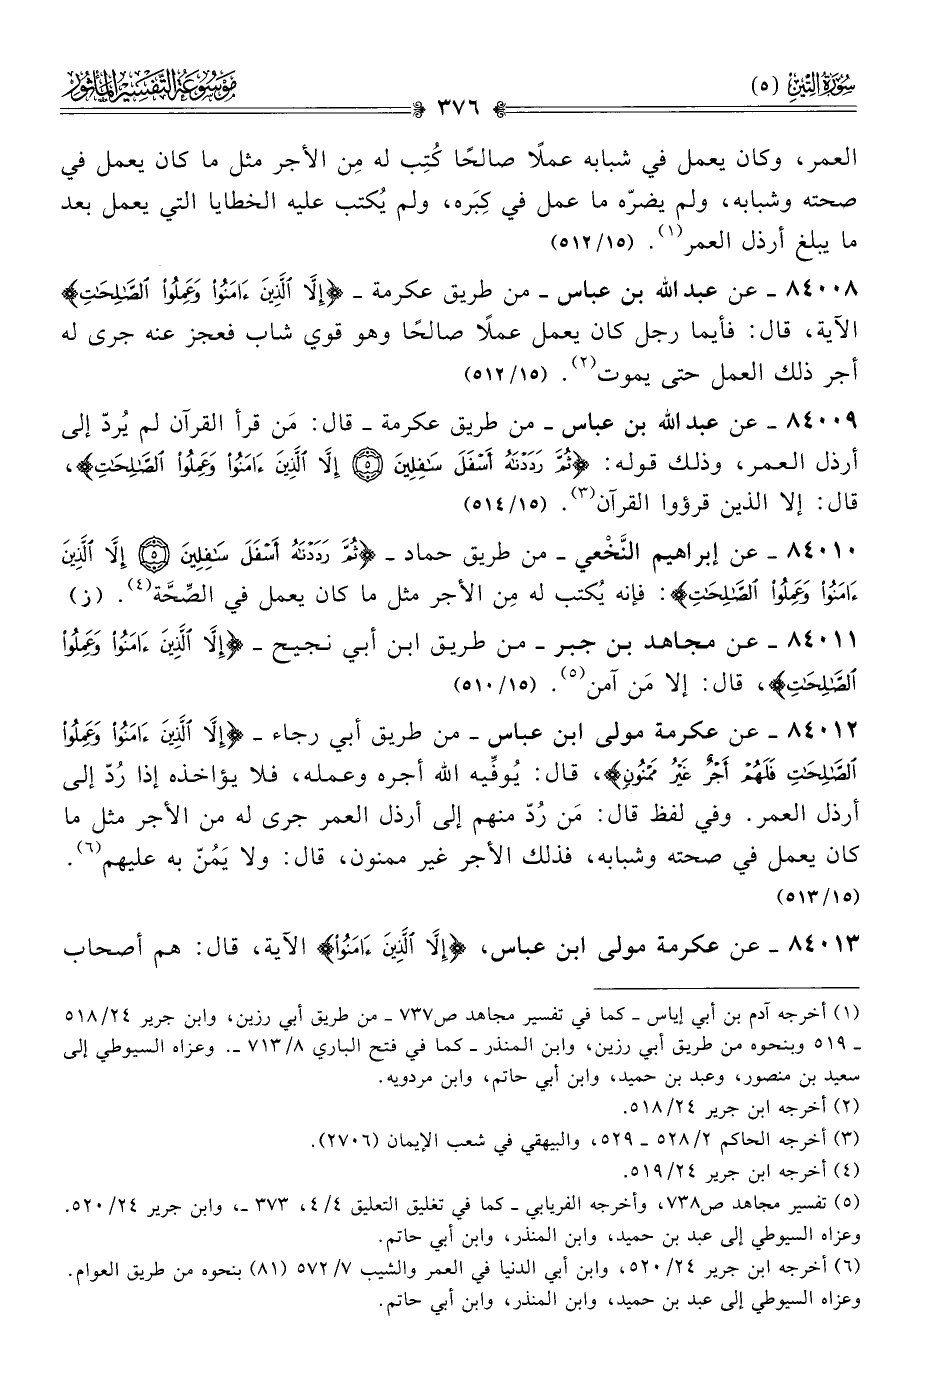 سُورَةُ التِّينِ (٥)
مَوْسُوعَةُ التَّفْسِيرِ المَأْثُور
٣٧٦
العمر، وكان يعمل في شبابه عملًا صالحًا كُتِب له مِن الأجر مثل ما كان يعمل في
صحته وشبابه، ولم يضرّه ما عمل في كِبَره، ولم يُكتب عليه الخطايا التي يعمل بعد
ما يبلغ أرذل العمر(١). (٥١٢/١٥)
٨٤٠٠٨ ـ عن عبد الله بن عباس ـ من طريق عكرمة ـ ﴿إِلَّا ٱلَّذِينَ ءَامَنُوا۟ وَعَمِلُوا۟ ٱلصَّٰلِحَٰتِ﴾
الآية، قال: فأيما رجل كان يعمل عملًا صالحًا وهو قوي شاب فعجز عنه جرى له
أجر ذلك العمل حتى يموت(٢). (٥١٢/١٥)
٨٤٠٠٩ ـ عن عبد الله بن عباس ـ من طريق عكرمة ـ قال: مَن قرأ القرآن لم يُردّ إلى
أرذل العمر، وذلك قوله: ﴿ثُمَّ رَدَدْنَٰهُ أَسْفَلَ سَٰفِلِينَ ۝٥ إِلَّا ٱلَّذِينَ ءَامَنُوا۟ وَعَمِلُوا۟ ٱلصَّٰلِحَٰتِ﴾،
قال: إلا الذين قرؤوا القرآن(٣). (٥١٤/١٥)
٨٤٠١٠ ـ عن إبراهيم النَّخْعي ـ من طريق حماد ـ ﴿ثُمَّ رَدَدْنَٰهُ أَسْفَلَ سَٰفِلِينَ ۝٥ إِلَّا ٱلَّذِينَ
ءَامَنُوا۟ وَعَمِلُوا۟ ٱلصَّٰلِحَٰتِ﴾: فإنه يُكتب له مِن الأجر مثل ما كان يعمل في الصِّحَّة(٤). (ز)
٨٤٠١١ ـ عن مجاهد بن جبر ـ من طريق ابن أبي نجيح ـ ﴿إِلَّا ٱلَّذِينَ ءَامَنُوا۟ وَعَمِلُوا۟
ٱلصَّٰلِحَٰتِ﴾، قال: إلا مَن آمن(٥). (٥١٠/١٥)
٨٤٠١٢ ـ عن عكرمة مولى ابن عباس ـ من طريق أبي رجاء ـ ﴿إِلَّا ٱلَّذِينَ ءَامَنُوا۟ وَعَمِلُوا۟
ٱلصَّٰلِحَٰتِ فَلَهُمْ أَجْرٌ غَيْرُ مَمْنُونٍ﴾، قال: يُوفِّيه الله أجره وعمله، فلا يؤاخذه إذا رُدّ إلى
أرذل العمر. وفي لفظ قال: مَن رُدّ منهم إلى أرذل العمر جرى له من الأجر مثل ما
كان يعمل في صحته وشبابه، فذلك الأجر غير ممنون، قال: ولا يَمُنّ به عليهم(٦).
(٥١٣/١٥)
٨٤٠١٣ ـ عن عكرمة مولى ابن عباس، ﴿إِلَّا ٱلَّذِينَ ءَامَنُوا۟﴾ الآية، قال: هم أصحاب
(١) أخرجه آدم بن أبي إياس ـ كما في تفسير مجاهد ص٧٣٧ ـ من طريق أبي رزين، وابن جرير ٥١٨/٢٤
ـ ٥١٩ وبنحوه من طريق أبي رزين، وابن المنذر ـ كما في فتح الباري ٧١٣/٨ ـ. وعزاه السيوطي إلى
سعيد بن منصور، وعبد بن حميد، وابن أبي حاتم، وابن مردويه.
(٢) أخرجه ابن جرير ٥١٨/٢٤.
(٣) أخرجه الحاكم ٥٢٨/٢ ـ ٥٢٩، والبيهقي في شعب الإيمان (٢٧٠٦).
(٤) أخرجه ابن جرير ٥١٩/٢٤.
(٥) تفسير مجاهد ص٧٣٨، وأخرجه الفريابي ـ كما في تغليق التعليق ٤/٤، ٣٧٣ ـ، وابن جرير ٥٢٠/٢٤.
وعزاه السيوطي إلى عبد بن حميد، وابن المنذر، وابن أبي حاتم.
(٦) أخرجه ابن جرير ٥٢٠/٢٤، وابن أبي الدنيا في العمر والشيب ٥٧٢/٧ (٨١) بنحوه من طريق العوام.
وعزاه السيوطي إلى عبد بن حميد، وابن المنذر، وابن أبي حاتم.